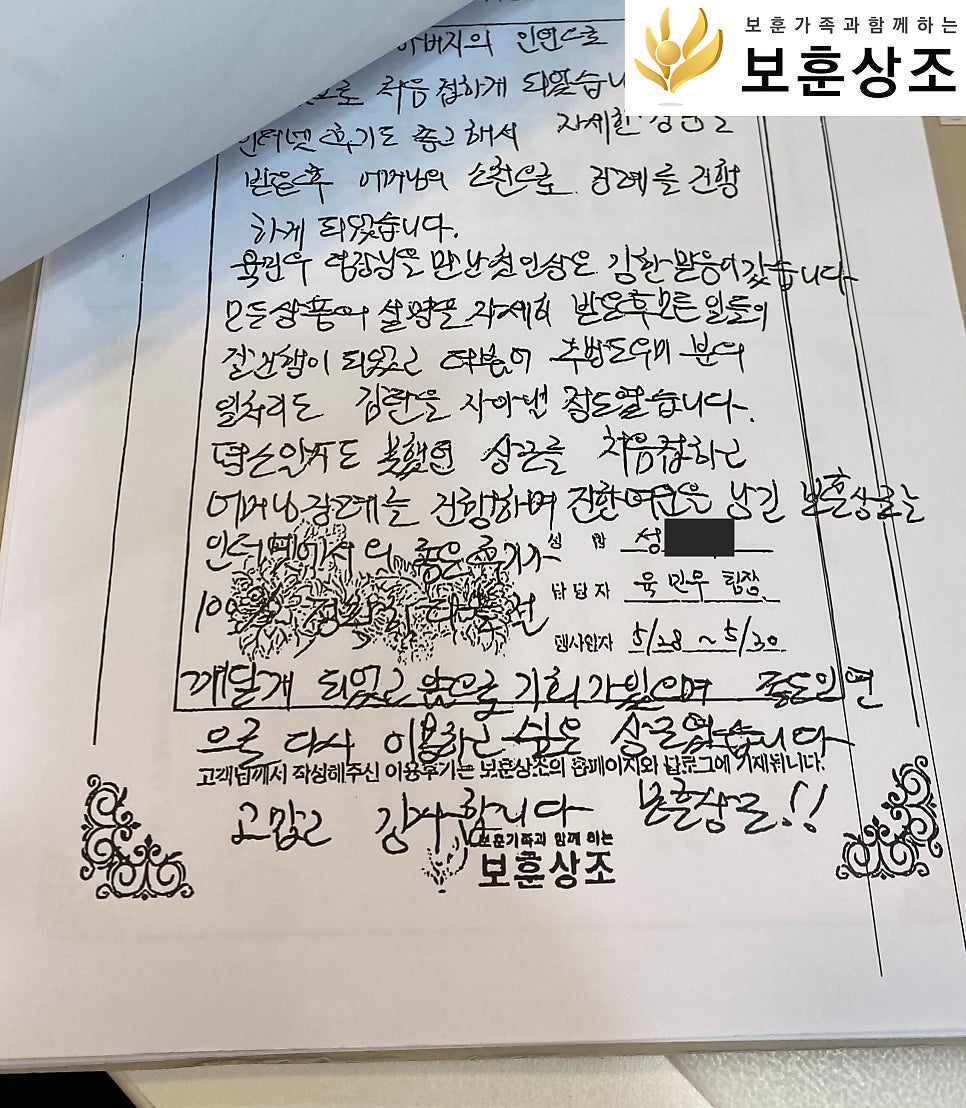 보훈가족과함께하는
보훈상조
아버지의 인연으로
으로 처음 접하게 되었습니
인터넷 후기도 종합해서 자세한
받은후 어머님의 소천으로 장례를 진행
하게 되었습니다.
육민우 팀장님을 만난 첫인상은 갔습니다
모든상품의 설명을 자세히 받은후 모든 일들의
진행이 되었고 여분의 주방도우미 분의
일처리도 감탄을 자아낼 정도였습니다.
평소알지도 못했던 상조를 처음접하고
어머님장례를 진행하며 진한여운을 남긴 보훈상조는
인터넷에서의 좋은후기가
성 함 성
100%
담당자 육민우 팀장
행사일자 5/28 ~ 5/30
깨닫게 되었고 앞으로 기회가있으며 좋은인연
으로 다시 이용하고 싶은 상조였습니다
고객님께서 작성해주신 이용후기는 보훈상조의 홈페이지와 블로그에 기재됩니다.
고맙고 감사합니다 보훈상조!!
보훈가족과 함께 하는
보훈상조